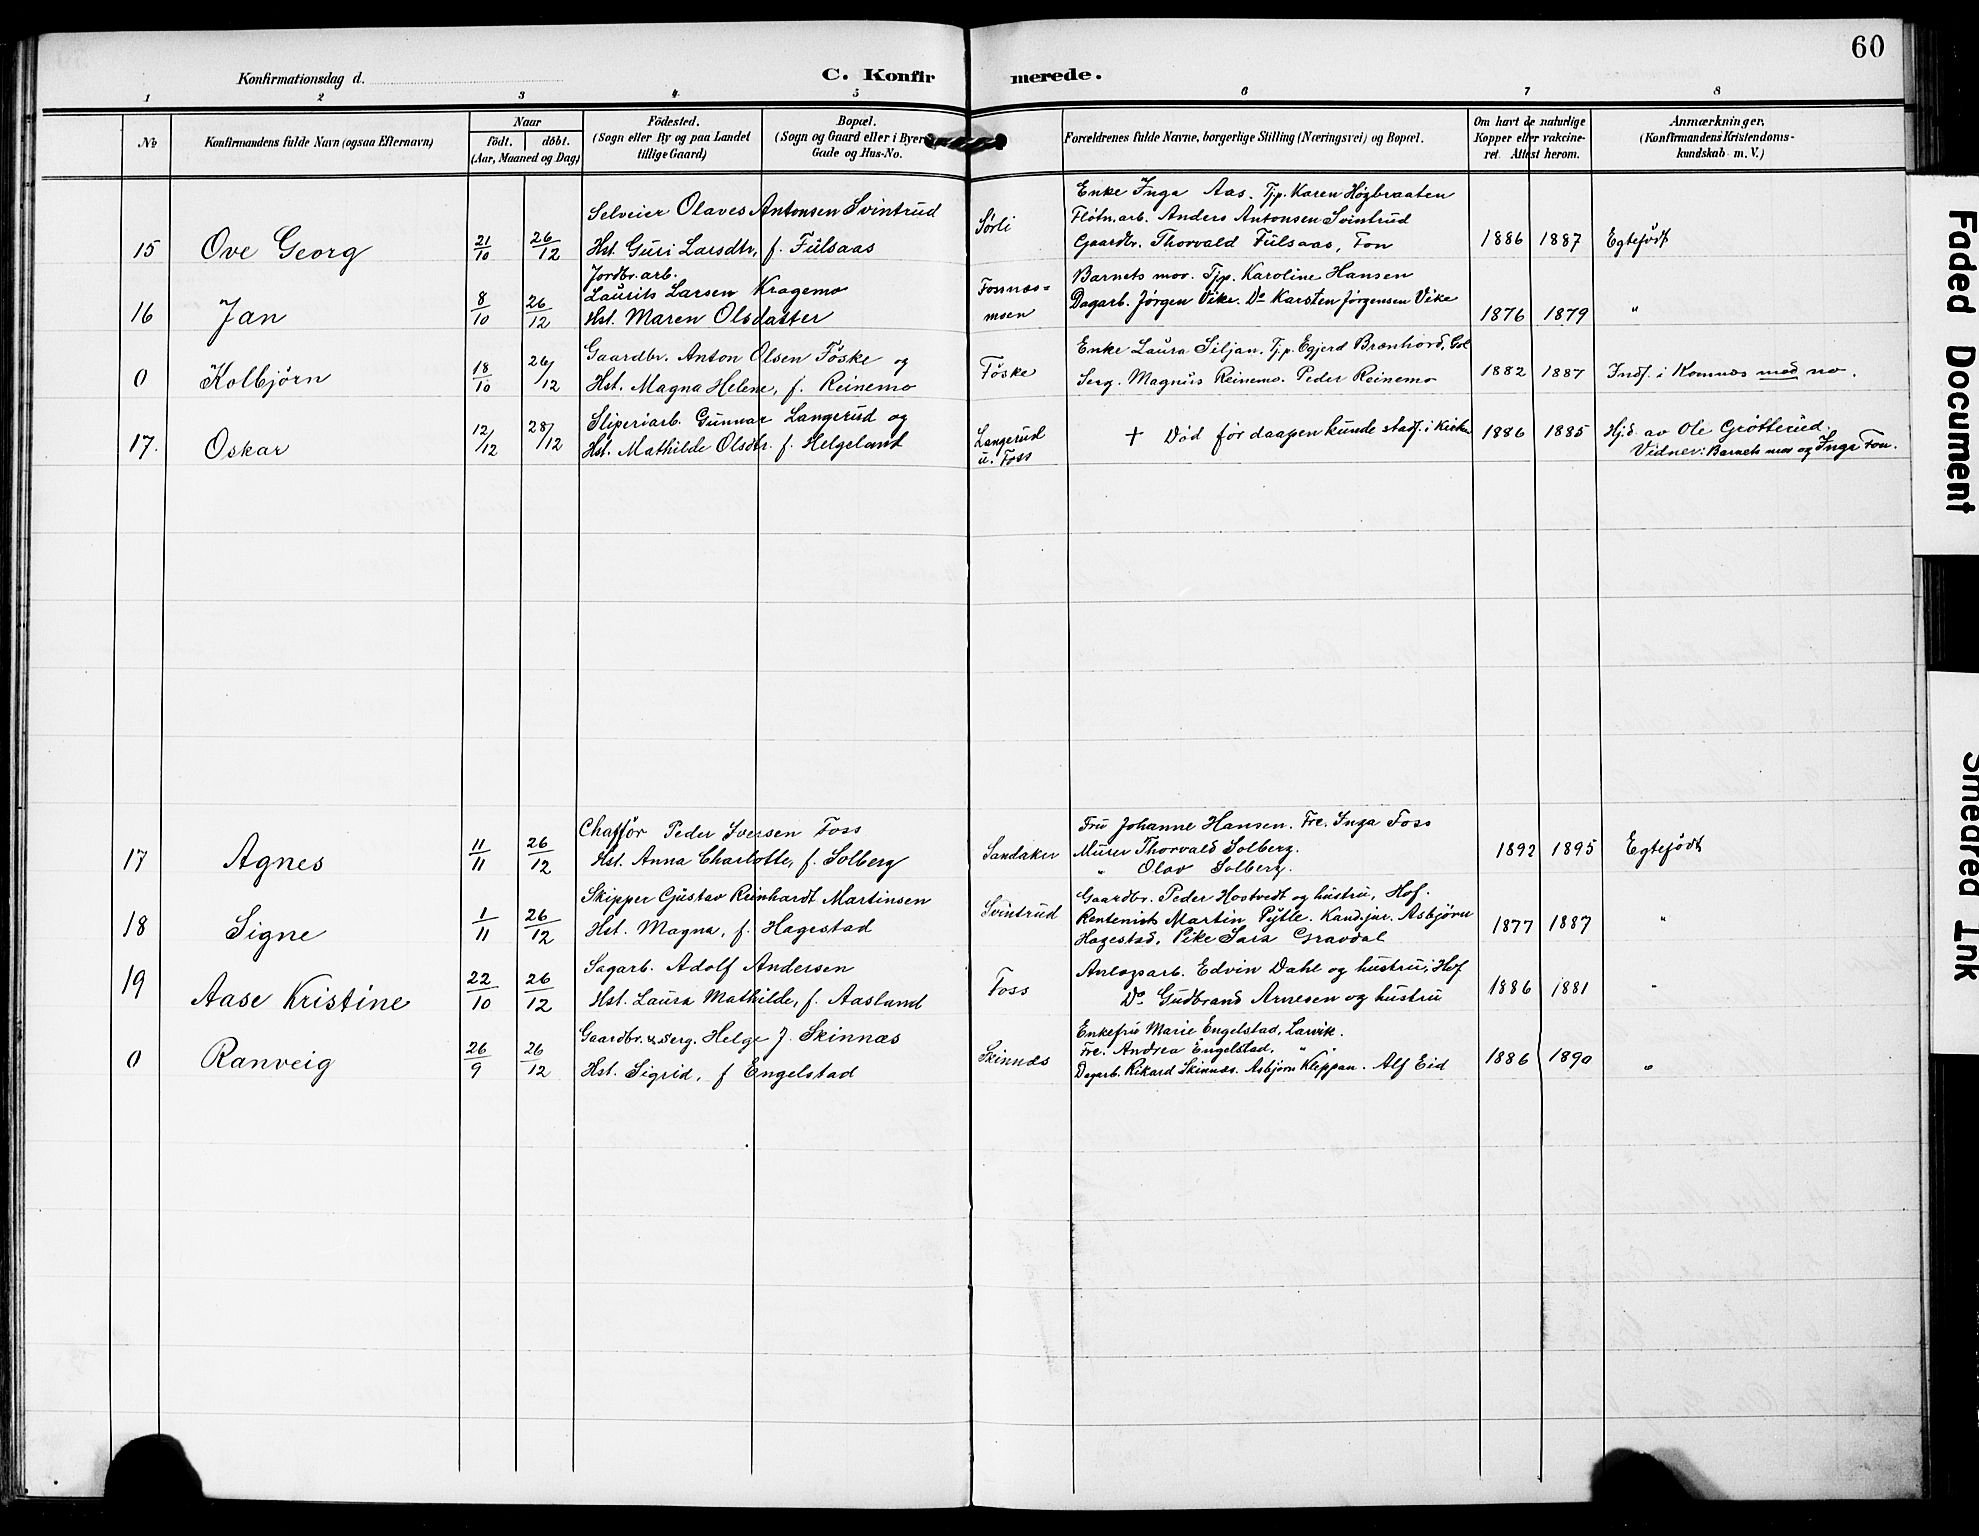 60
Konfirmationsdag d.
C. Konfirmerede.
1 2 3 4 5 6 7 8
No
Konfirmandens fulde Navn (ogsaa Efternavn)
Naar
födt. döbt.
(Aar, Maaned og Dag)
Födested.
(Sogn eller By og paa Landet
tillige Gaard)
Bopæl.
(Sogn og Gaard eller i Byer
Gade og Hus-No.
Forældrenes fulde Navne, borgerlige Stilling (Næringsvei) og Bopæl.
Om havt de naturlige
Kopper eller vakcine-
ret. Attest herom.
Anmærkninger.
(Konfirmandens Kristendoms-
kundskab m. V.)
15 Ove Georg 21/10 26/12
Selveier Olaves Antonsen Svintrud
Hst. Guri Larsdtr, f. Fulsaas
Sørli
Enke Inga Aas. Tjp. Karen Høgbraaten
Fløtn.arb. Anders Antonsen Svintrud
Gaardbr. Thorvald Fulsaas, Fon
1886 1887 Egtefödt
16 Jan 8/10 26/12
Jordbr.arb.
Laurits Larsen Kragemo
Hst. Maren Olsdatter
Fosnæs-
moen
Barnets mor. Tjp. Karoline Hansen
Dagarb. Jørgen Vike. Do Karsten Jørgensen Vike
1876 1879 "
0 Kolbjörn 18/10 26/12
Gaardbr. Anton Olsen Föske og
Hst. Magna Helene, f. Reinemo
Föske
Enke Laura Siljan. Tjp. Egjerd Brænhord, Gol
Serg. Magnus Reinemo. Peder Reinemo
1882 1887 Indf. i Komnæs med no.
17. Oskar 12/12 28/12
Sliperiarb. Gunnar Langerud og
Hst. Mathilde Olsdtr. f. Helgeland
Langerud
u. Foss
+ Död før daapen kunde stadf. i Kirken
1886 1885 Hjd. av Ole Grötterud.
Vidner: Barnets mor og Inga Fon.
17 Agnes 11/11 26/12
Chafför Peder Iversen Foss
Hst. Anna Charlotte, f. Solberg
Sandaker
Fru Johanne Hansen. Frk. Inga Foss
Murer Thorvald Solberg.
" Olav Solberg.
1892 1895 Egtefödt
18 Signe 1/11 26/12
Skipper Gustav Reinhardt Martinsen
Hst. Magna, f. Hagestad
Svintrud
Gaardbr. Peder Hostvedt og hustru, Hof.
Rentenist Martin Pytte. Kand.jur. Asbjørn
Hagestad, Pike Sara Gravdal
1877 1887 "
19 Aase Kristine 22/10 26/12
Sagarb. Adolf Andersen
Hst. Laura Mathilde, f. Aasland
Foss
Anlægsarb. Edvin Dahl og hustru, Hof
Do. Gudbrand Arnesen og hustru
1886 1881 "
0 Ranveig 26/9 26/12
Gaardbr. & serg. Helge J. Skinnæs
Hst. Sigrid, f Engelstad
Skinnæs
Enkefru Marie Engelstad, Larvik.
Frk. Andrea Engelstad, " "
Dagarb. Rikard Skinnæs. Asbjørn Kleppan. Alf Eid
1886 1890 "
Faded Document
Smeared Ink